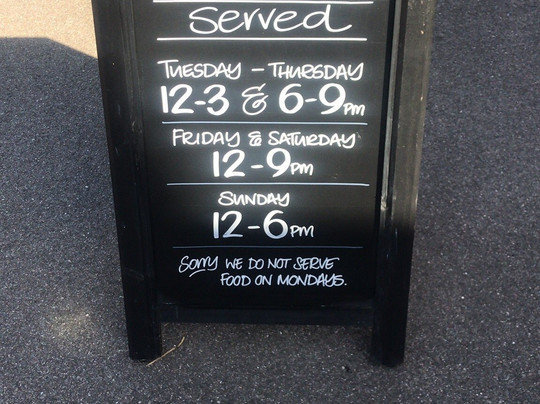 Served
TUESDAY - THURSDAY
12-3 & 6-9PM
FRIDAY & SATURDAY
12-9PM
SUNDAY
12-6PM
Sorry WE DO NOT SERVE
FOOD ON MONDAYS.